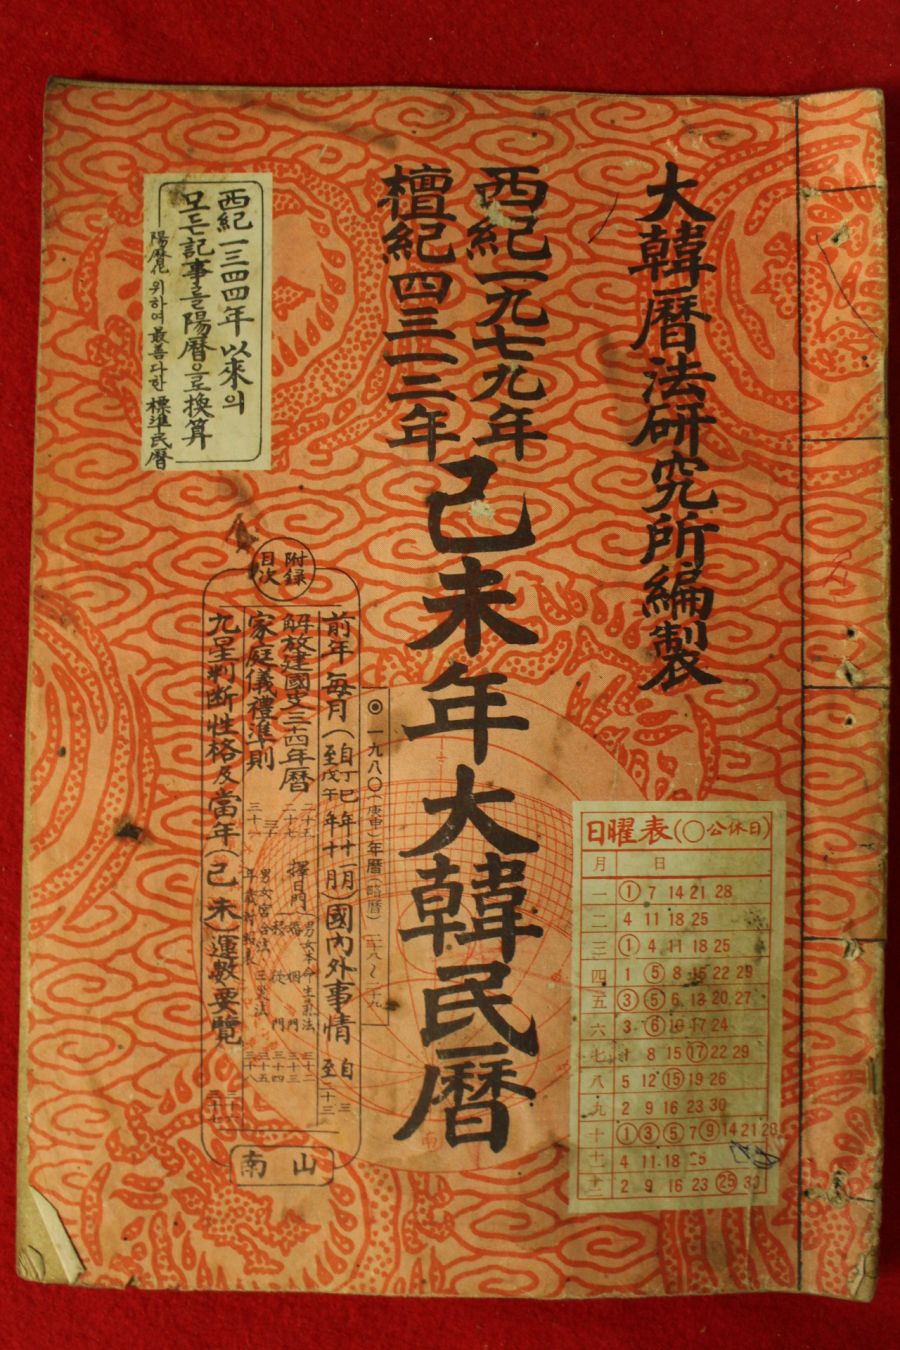 大韓曆法研究所編製
西紀一九七九年
檀紀四三一二年
己未年大韓民曆
西紀一三四四年以來의
모든記事를陽曆으로換算
陽曆化위하여最善다한標準民曆
附録
目次
前年每月(自丁巳年十一月)國內外事情
至戊午年十月
解放建國支三十四年曆
家庭儀禮準則
九星判斷性格及當年(己未)運數要覽
南山
日曜表(○公休日)
月 日
一 ① 7 14 21 28
二 4 11 18 25
三 ① 4 11 18 25
四 1 ⑤ 8 15 22 29
五 ③ ⑤ 6 13 20 27
六 3 ⑥ 10 17 24
七 1 8 15 ⑰ 22 29
八 5 12 ⑮ 19 26
九 2 9 16 23 30
十 ① ③ ⑤ 7 ⑨ 14 21 28
十一 4 11 18 25
十二 2 9 16 23 ㉕ 30